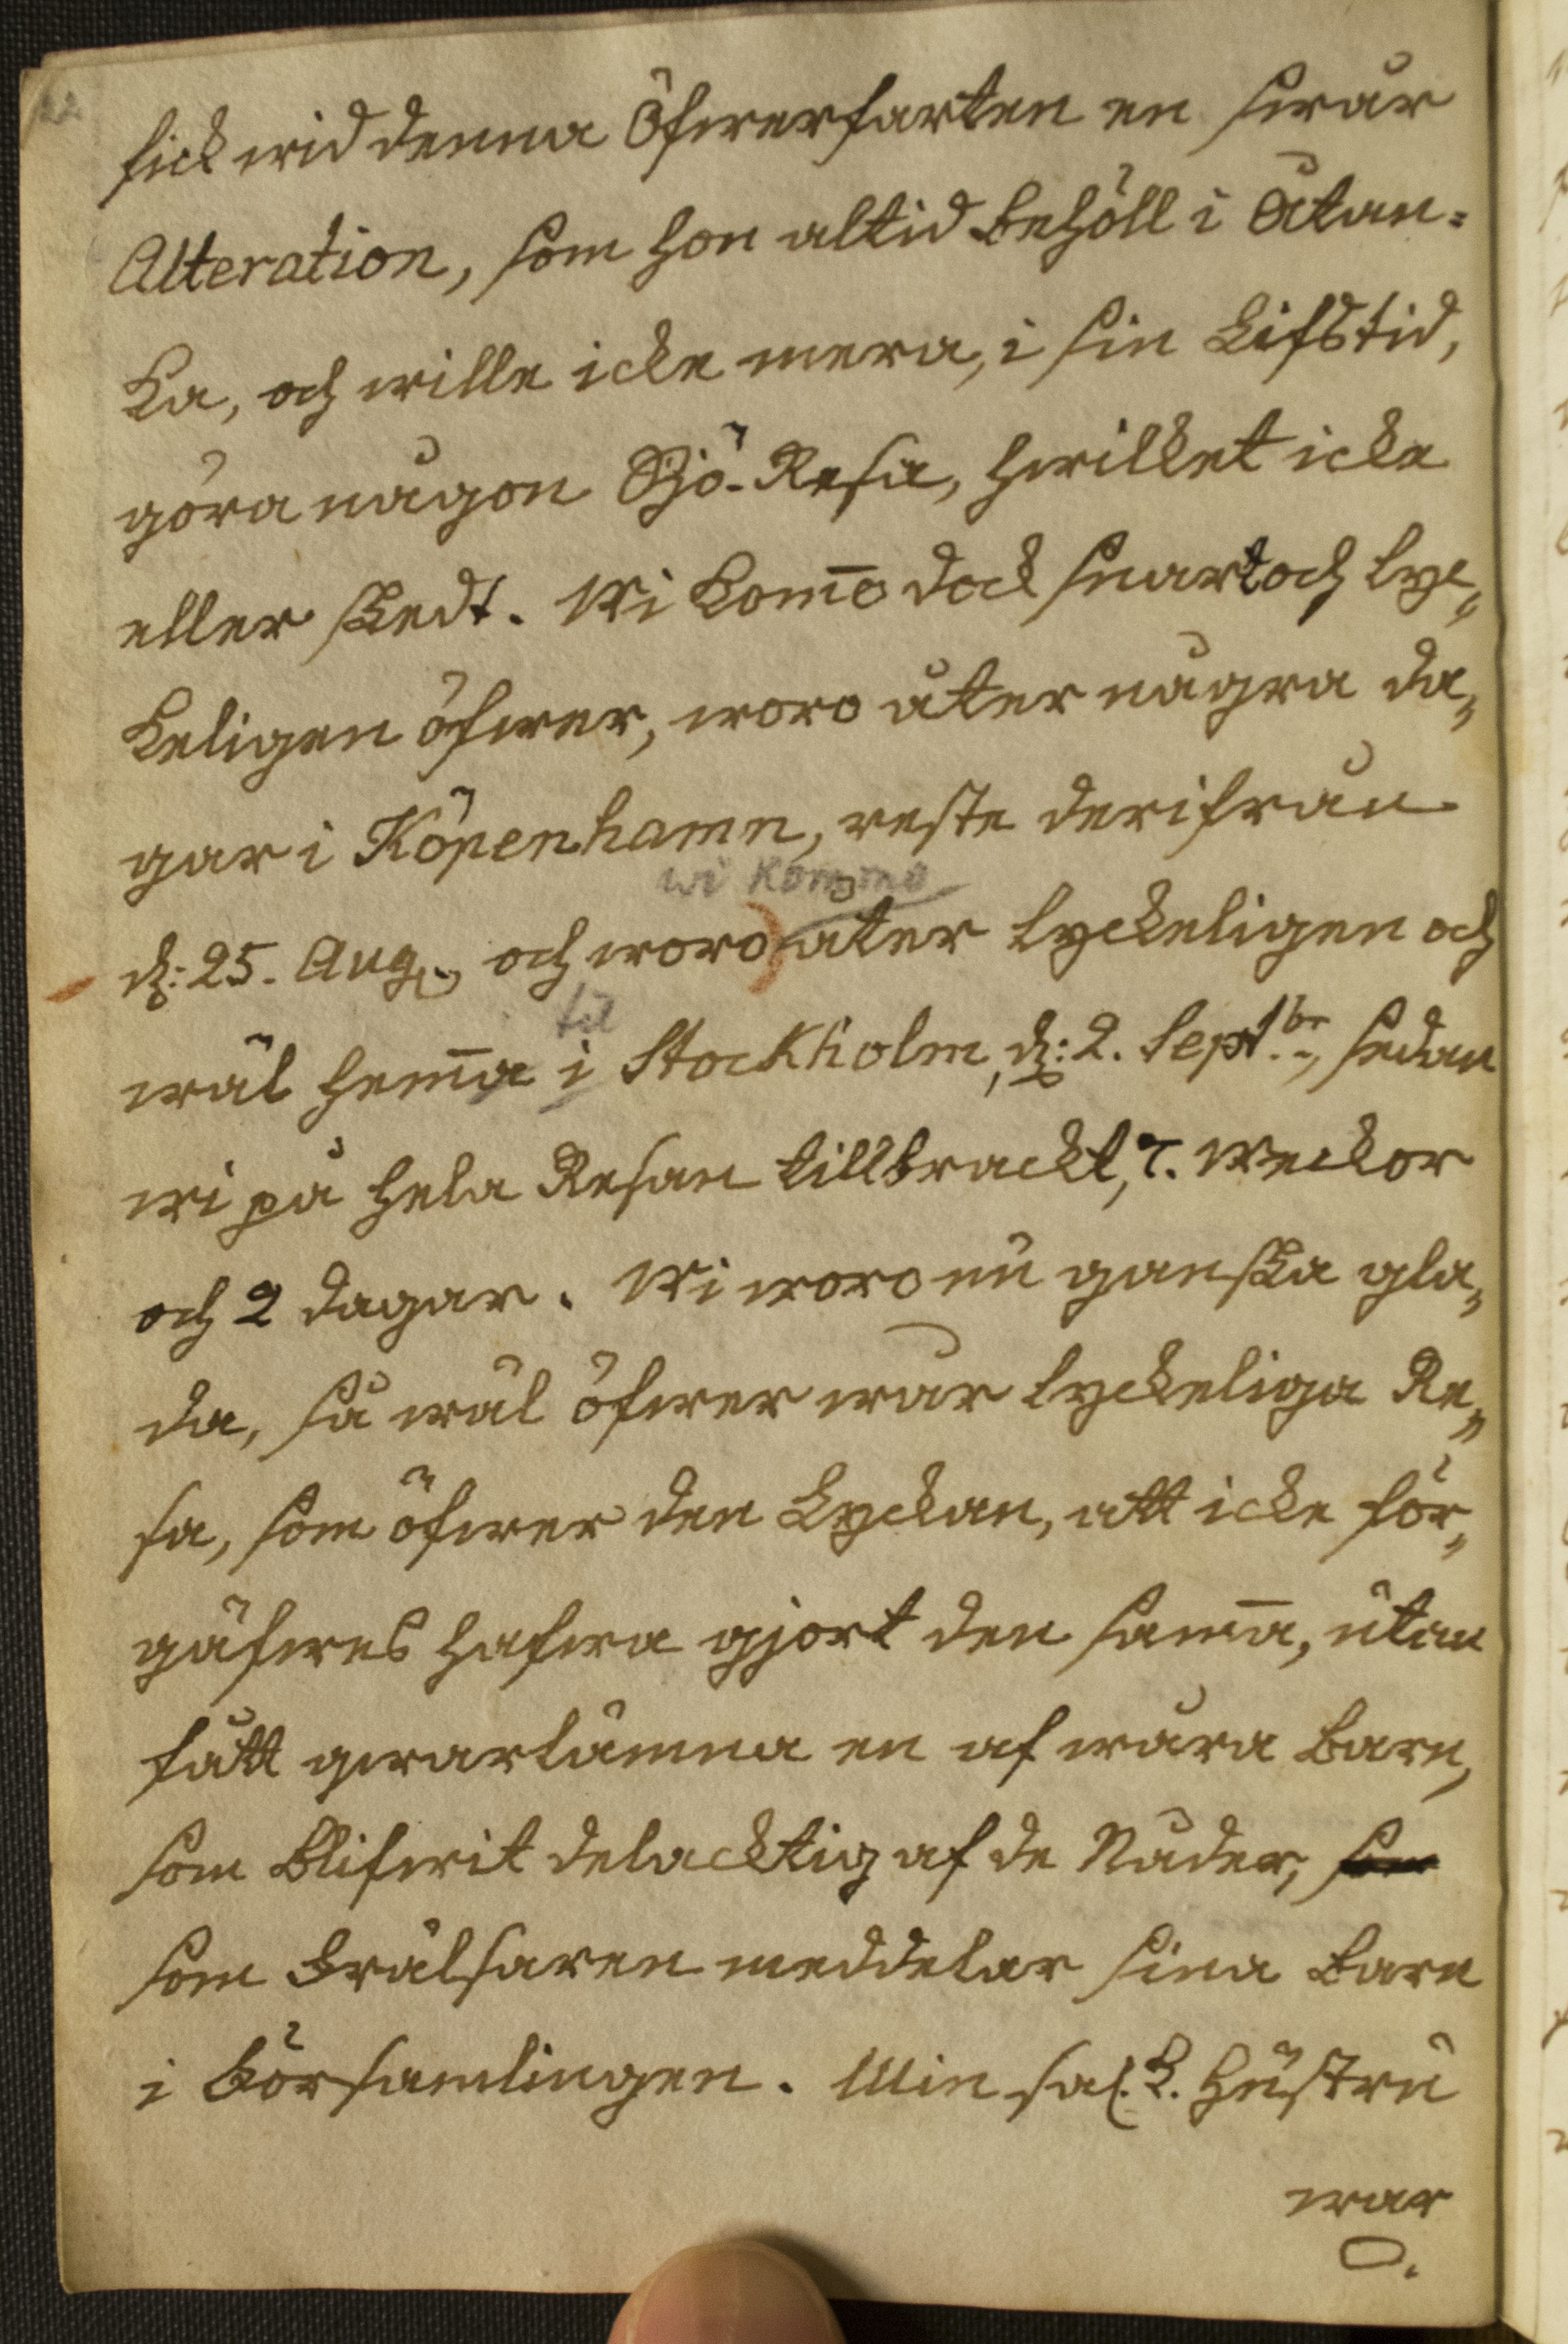 22
fick wid denna Öfwerfarten en swår
Alteration, som hon altid behöll i Åtan-
ka, och wille icke mera, i sin Lifstid,
göra någon Sjö-Resa, hwilket icke
eller skedt. Wi kom̄o dock snart och lyc„
keligen öfwer, woro åter några da„
gar i Köpenhamn, reste derifrån
wi kommo
d: 25. Aug., och woro åter lyckeligen och
til
wäl hem̄a i Stockholm, d: 2. Septbr., sedan
wi på hela Resan tillbrackt, 7. Weckor
och 2 dagar. Wi woro nu ganska gla„
da, så wäl öfwer wår lyckeliga Re„
sa, som öfwer den Lyckan, att icke för„
gäfwes hafwa gjort den sam̄a, utan
fått qwarlämna en af wåra Barn,
som blifwit delacktig af de Nåder, som
som Frälsaren meddelar sina Barn
i Församlingen. Min sal. k. Hustru
war